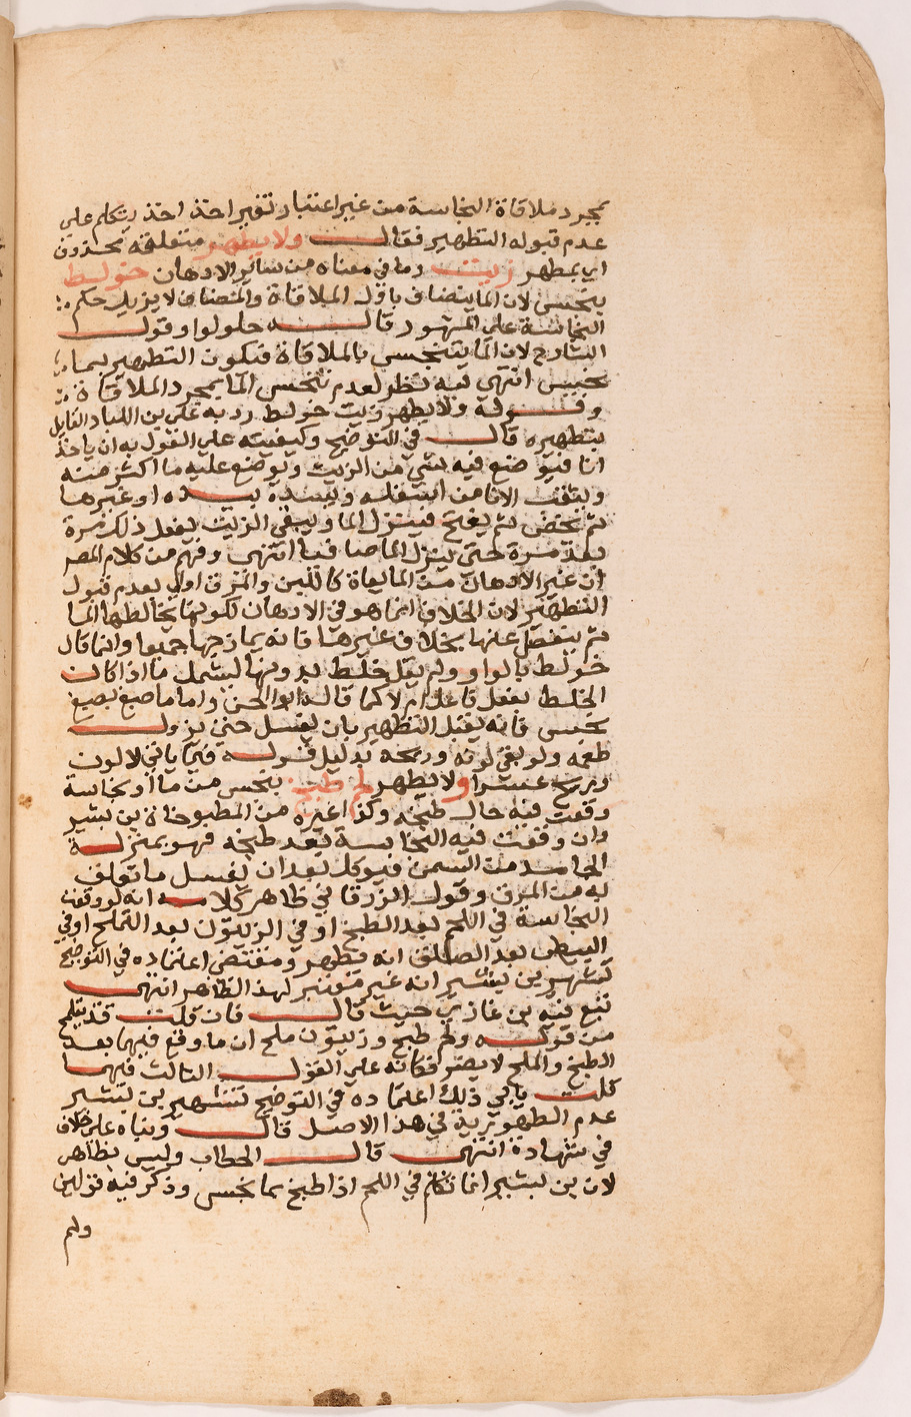 بمجرد ملاقاة النجاسة من غير اعتبار تغير اخذ اخذ يتكلم على
عدم قبوله التطهير فقال ولا يطهر متعلقه محذوف
اي بمطهر زيت وما في معناه من ساير الادهان خولط
بنجس لان الما ينضاف باول الملاقاة والمضاف لا يزيل حكم
النجاسة على المشهور قاله حلولوا وقول
الشارح لان الما يتنجس بالملاقاة فيكون التطهير بما
نجس انتهى فيه نظر لعدم تنجس الما بمجرد الملاقاة
وقوله ولا يطهر زيت خولط رد به على بن اللباد القايل
بتطهيره قال في التوضيح وكيفيته على القول به ان ياخذ
انا فيوضع فيه شي من الزيت ويوضع عليه ما اكثر منه
ويثقب الانا من اسفله ويسده بيده او غيرها
ثم يمخض ثم يفتح فينزل الما ويبقى الزيت يفعل ذلك مرة
بعد مرة حتى ينزل الما صافيا انتهى وفهم من كلام المص
ان غير الادهان من المايعاة كاللبن والمرق اولى بعدم قبول
التطهير لان الخلاف انما هو في الادهان لكونها يخالطها الما
ثم ينفصل عنها بخلاف غيرها فانه يمازجها جميعا وانما قال
خولط بالواو ولم يقل خلط بدونها ليشمل ما اذا كان
الخلط بفعل فاعل ام لا كما قاله ابو الحسن واما ما صبغ بصبغ
نجس فانه يقبل التطهير بان يغسل حتى يزول
طعمه ولو بقي لونه وريحه بدليل قوله فيما ياتي لا لون
وريح عسرا ولا يطهر لحم طبخ بنجس من ما او نجاسة
وقعت فيه حال طبخه وكذا غيره من المطبوخاة بن بشير
وان وقعت فيه النجاسة بعد طبخه فهو بمنزلة
الجامد من السمن فيوكل بعد ان يغسل ما تعلق
به من المرق وقول الزرقاني ظاهر كلامه انه لو وقعت
النجاسة في اللحم بعد الطبخ او في الزيتون بعد التملح او في
البيض بعد الصلق انه يطهر ومقتضى اعتماده في التوضيح
تشهير بن بشير انه غير معتبر لهذا الظاهر انتهى
تبع فيه بن غازي حيث قال فان قلت قد يتلمح
من قوله ولحم طبخ وزيتون ملح ان ما وقع فيهما بعد
الطبخ والملح لا يضر فكانه على القول الثالث فيهما
قلت يابى ذلك اعتماده في التوضيح تشهير بن بشير
عدم الطهورية في هذا الاصل قال وبناه على خلاف
في شهادة انتهى قال الحطاب وليس بظاهر
لان بن بشير انما تكلم في اللحم اذا طبخ بما نجس وذكر فيه قولين
ولم